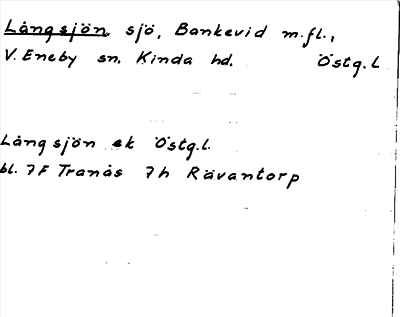 Långsjön, sjö, Bankevid m.fl.,
V. Eneby sn. Kinda hd. Östg. L
Långsjön ek Östg.l.
bl. 7F Tranås 7h Rävantorp